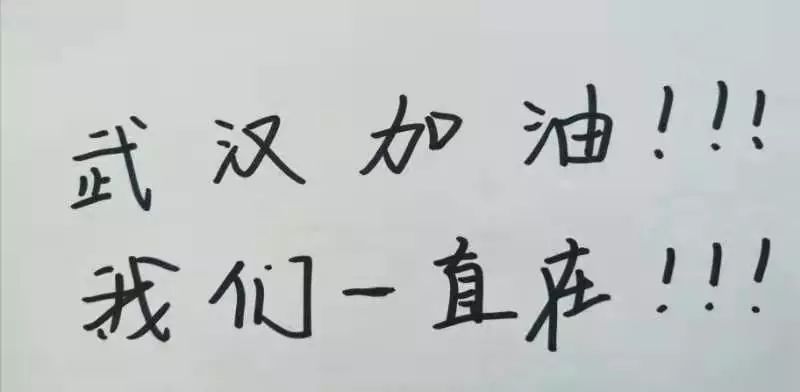 武汉加油!!!
我们一直在!!!